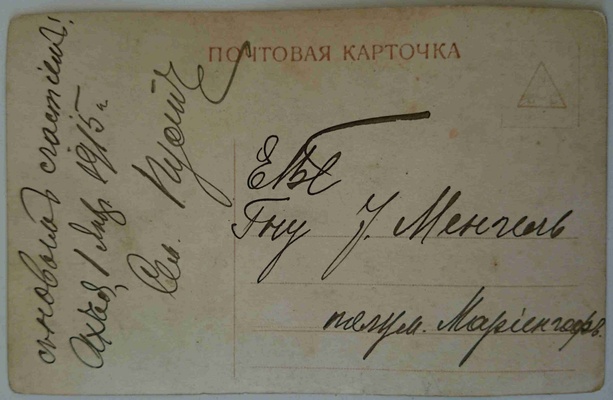 ПОЧТОВАЯ КАРТОЧКА
съ новымъ счастіемъ!
1 Янв. 1915 г.
ЕВБ
Гну У. Менгель
полум. Маріенгофъ